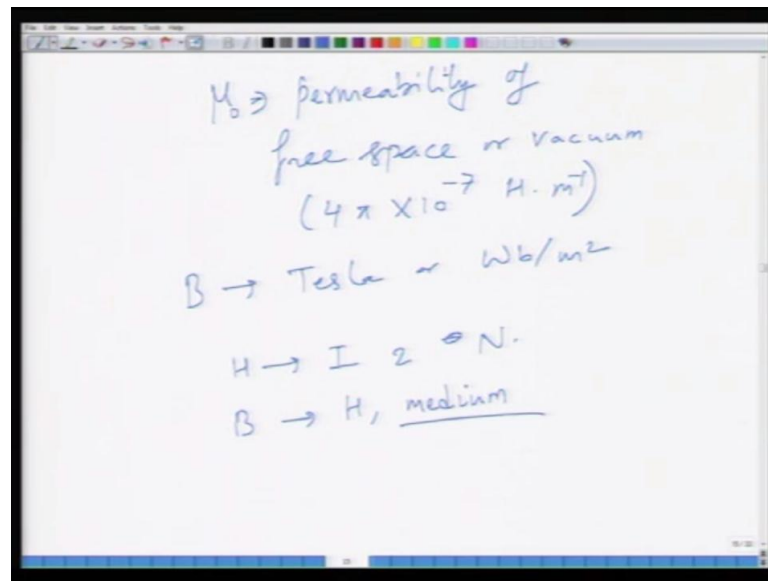 File Edit View Insert Actions Tools Help
μ₀ ⇒ permeability of
free space or vacuum
(4π X10⁻⁷ H·m⁻¹)
B → Tesla or Wb/m²
H → I & N.
B → H, medium